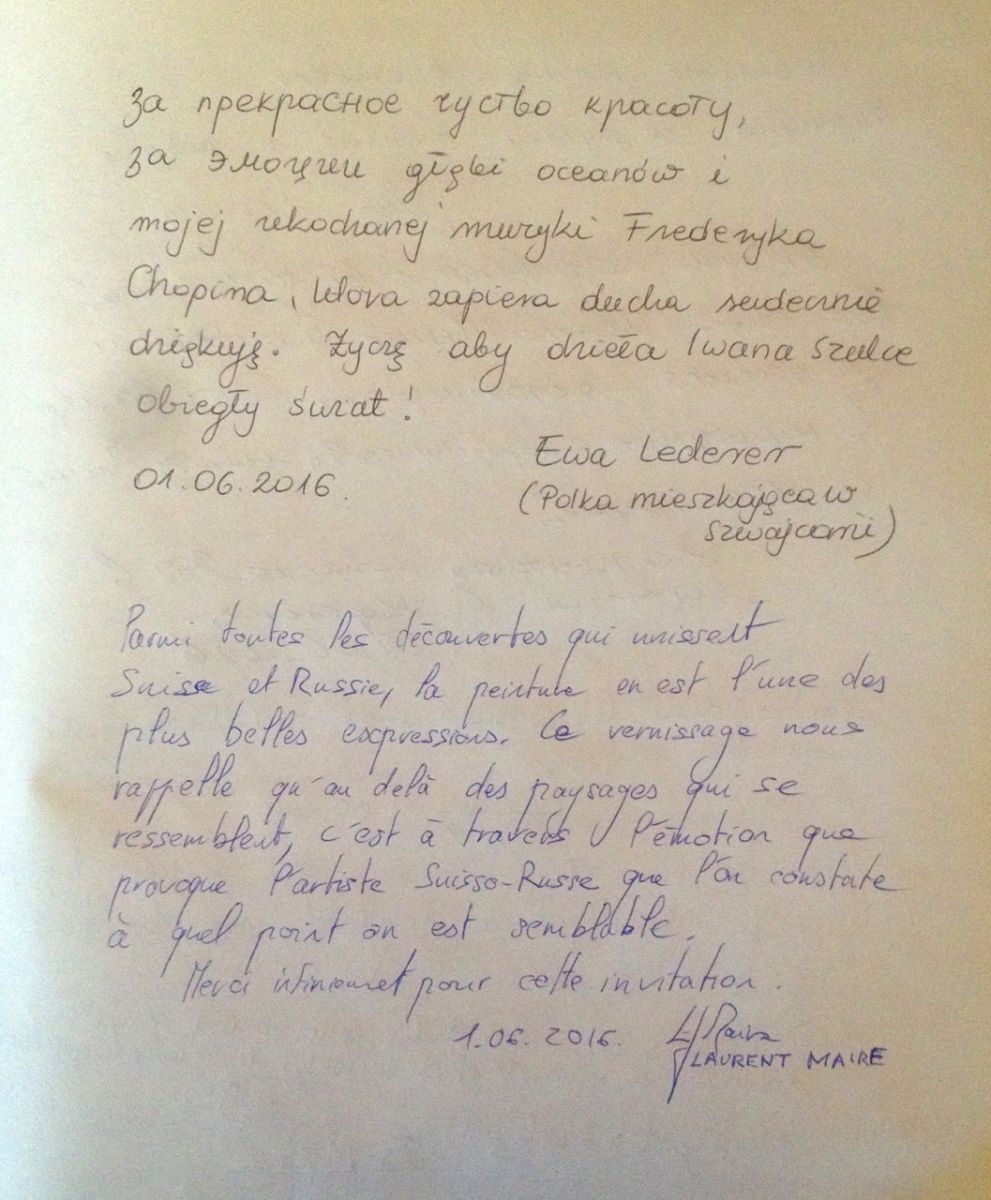 За прекрасное чуство красоту,
за эмоции głębi oceanów i
mojej ukochanej muzyki Frederyka
Chopina, która zapiera ducha serdecznie
dziękuję. Życzę aby dzieła Iwana Szulce
obiegły świat!
Ewa Lederer
01.06.2016.
(Polka mieszkająca w
Szwajcarii)
Parmi toutes les découvertes qui unissent
Suisse et Russie, la peinture en est l'une des
plus belles expressions. Ce vernissage nous
rappelle qu'au delà des paysages qui se
ressemblent, c'est à travers l'émotion que
provoque l'artiste Suisso-Russe que l'on constate
à quel point on est semblable.
Merci infiniment pour cette invitation.
1.06.2016.
LAURENT MAIRE